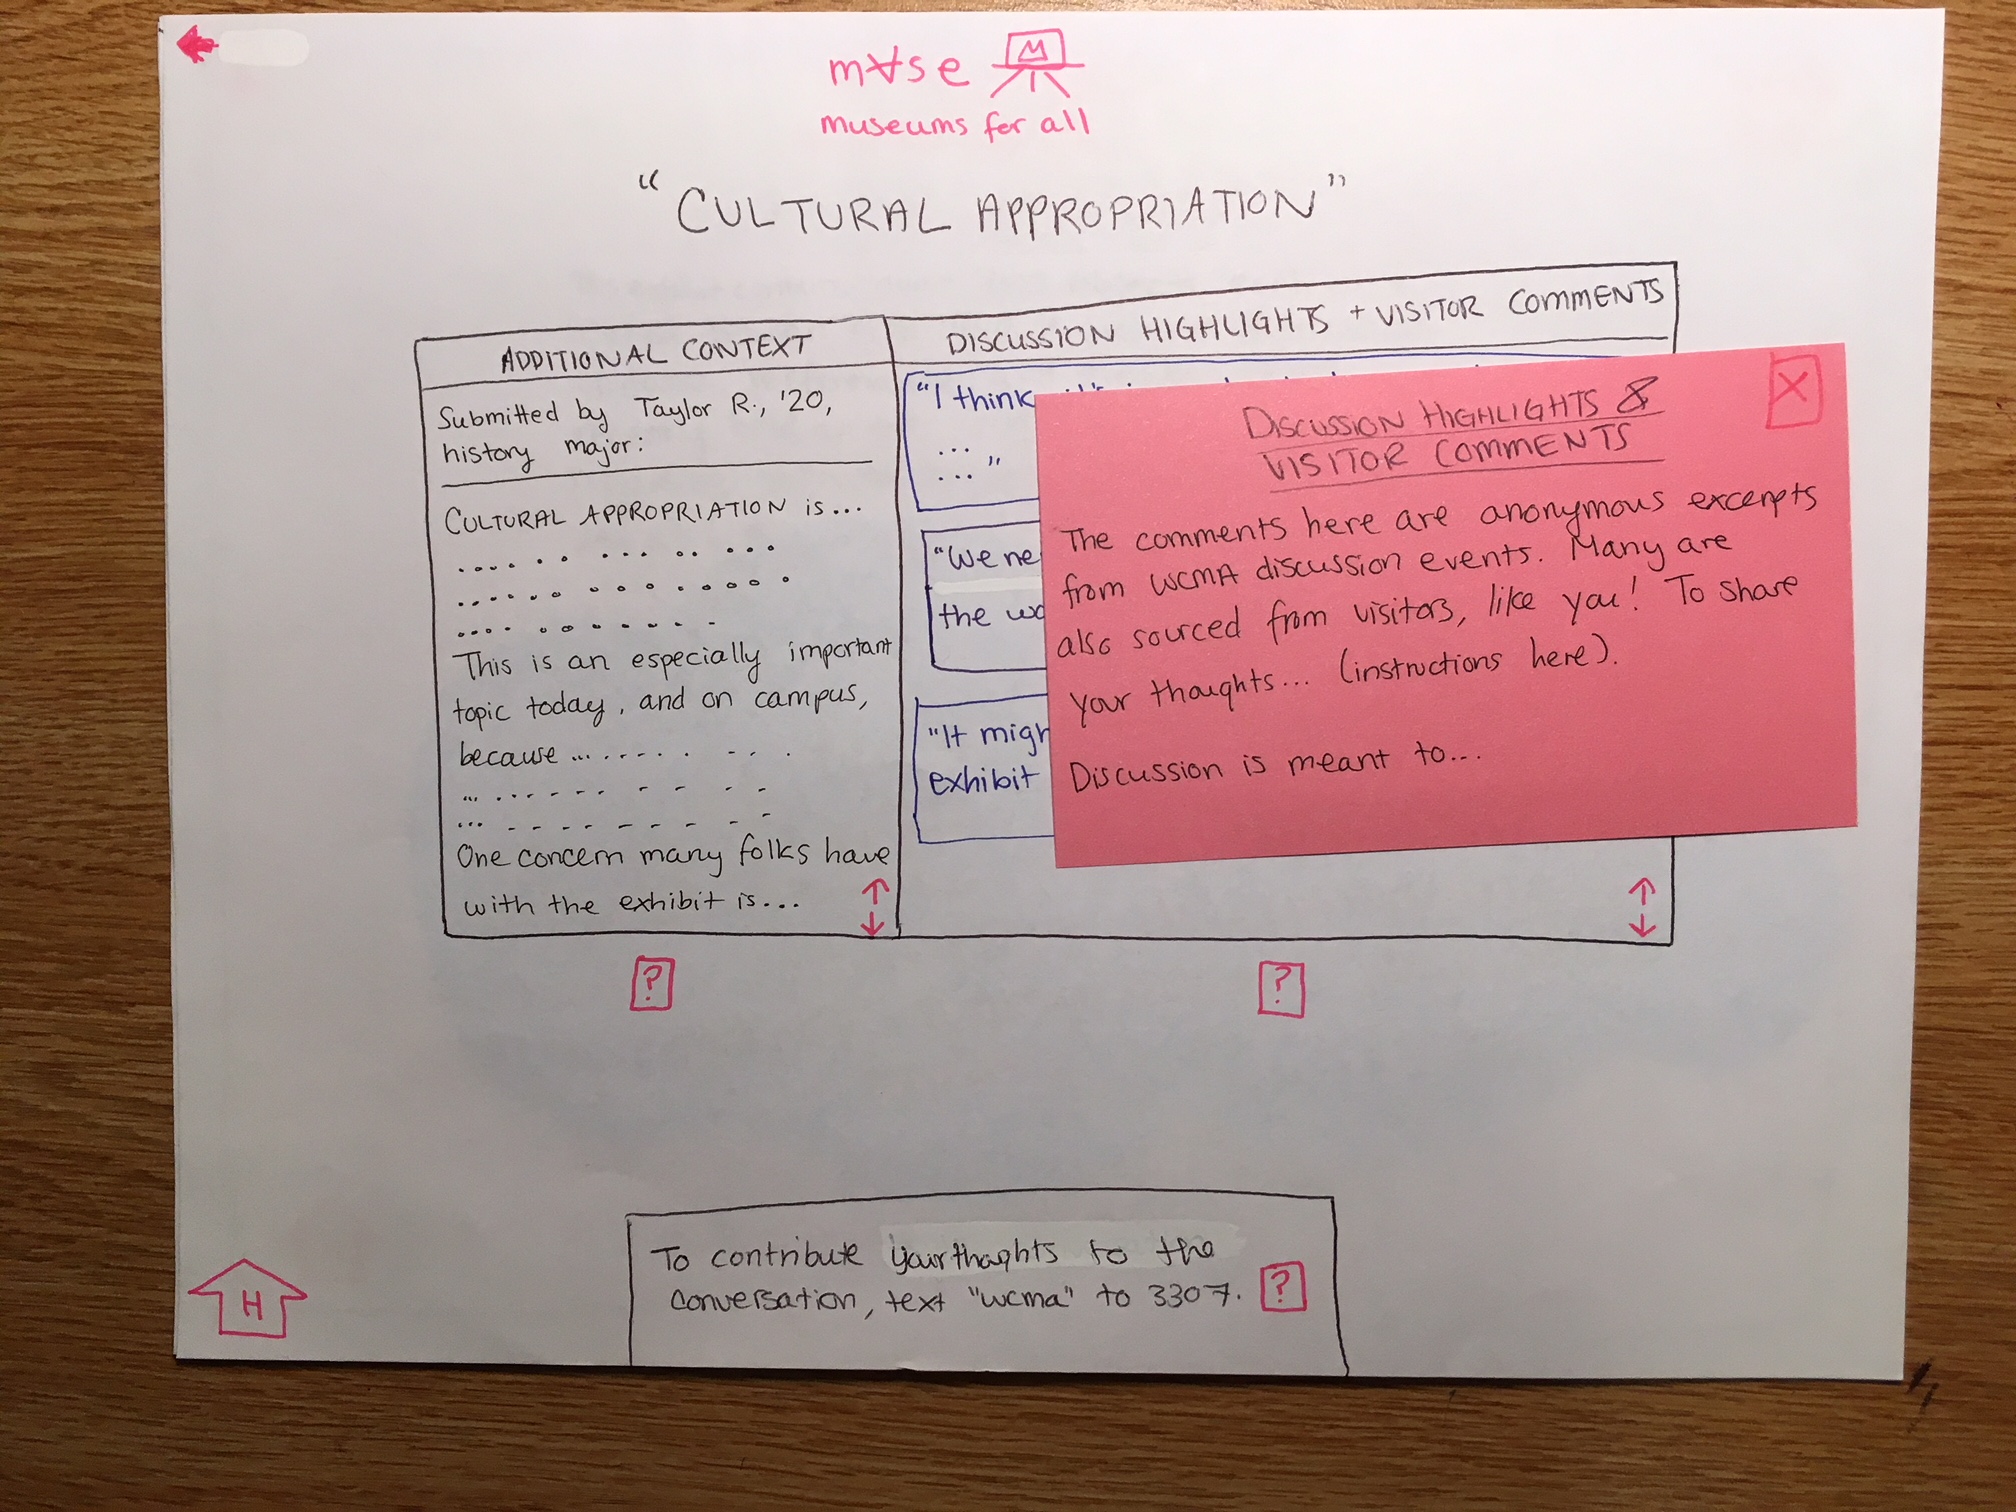 m∀se
M
museums for all
"CULTURAL APPROPRIATION"
ADDITIONAL CONTEXT
Submitted by Taylor R., '20,
history major:
CULTURAL APPROPRIATION is...
This is an especially important
topic today, and on campus,
because ...
One concern many folks have
with the exhibit is...
?
DISCUSSION HIGHLIGHTS + VISITOR COMMENTS
"I think
...
... "
"We ne
the wo
"It migh
exhibit
?
X
DISCUSSION HIGHLIGHTS &
VISITOR COMMENTS
The comments here are anonymous excerpts
from WCMA discussion events. Many are
also sourced from visitors, like you! To share
your thoughts... (instructions here).
Discussion is meant to...
To contribute your thoughts to the
conversation, text "wcma" to 3307.
?
H